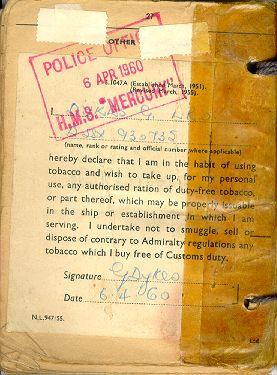 27
OTHER
POLICE OFFICE
6 APR 1960
H.M.S. "MERCURY"
S.1047A (Established March, 1951).
(Revised March, 1955).
I
(name, rank or rating and official number, where applicable)
hereby declare that I am in the habit of using
tobacco and wish to take up, for my personal
use, any authorised ration of duty-free tobacco,
or part thereof, which may be properly issuable
in the ship or establishment in which I am
serving. I undertake not to smuggle, sell or
dispose of contrary to Admiralty regulations any
tobacco which I buy free of Customs duty.
Signature G Dykes
Date 6.4.60
N.L.947/55.